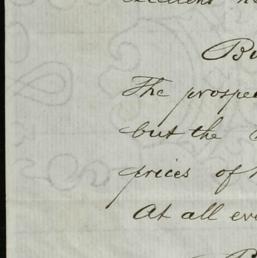 Bu
The prospe
but the
prices of
At all eve